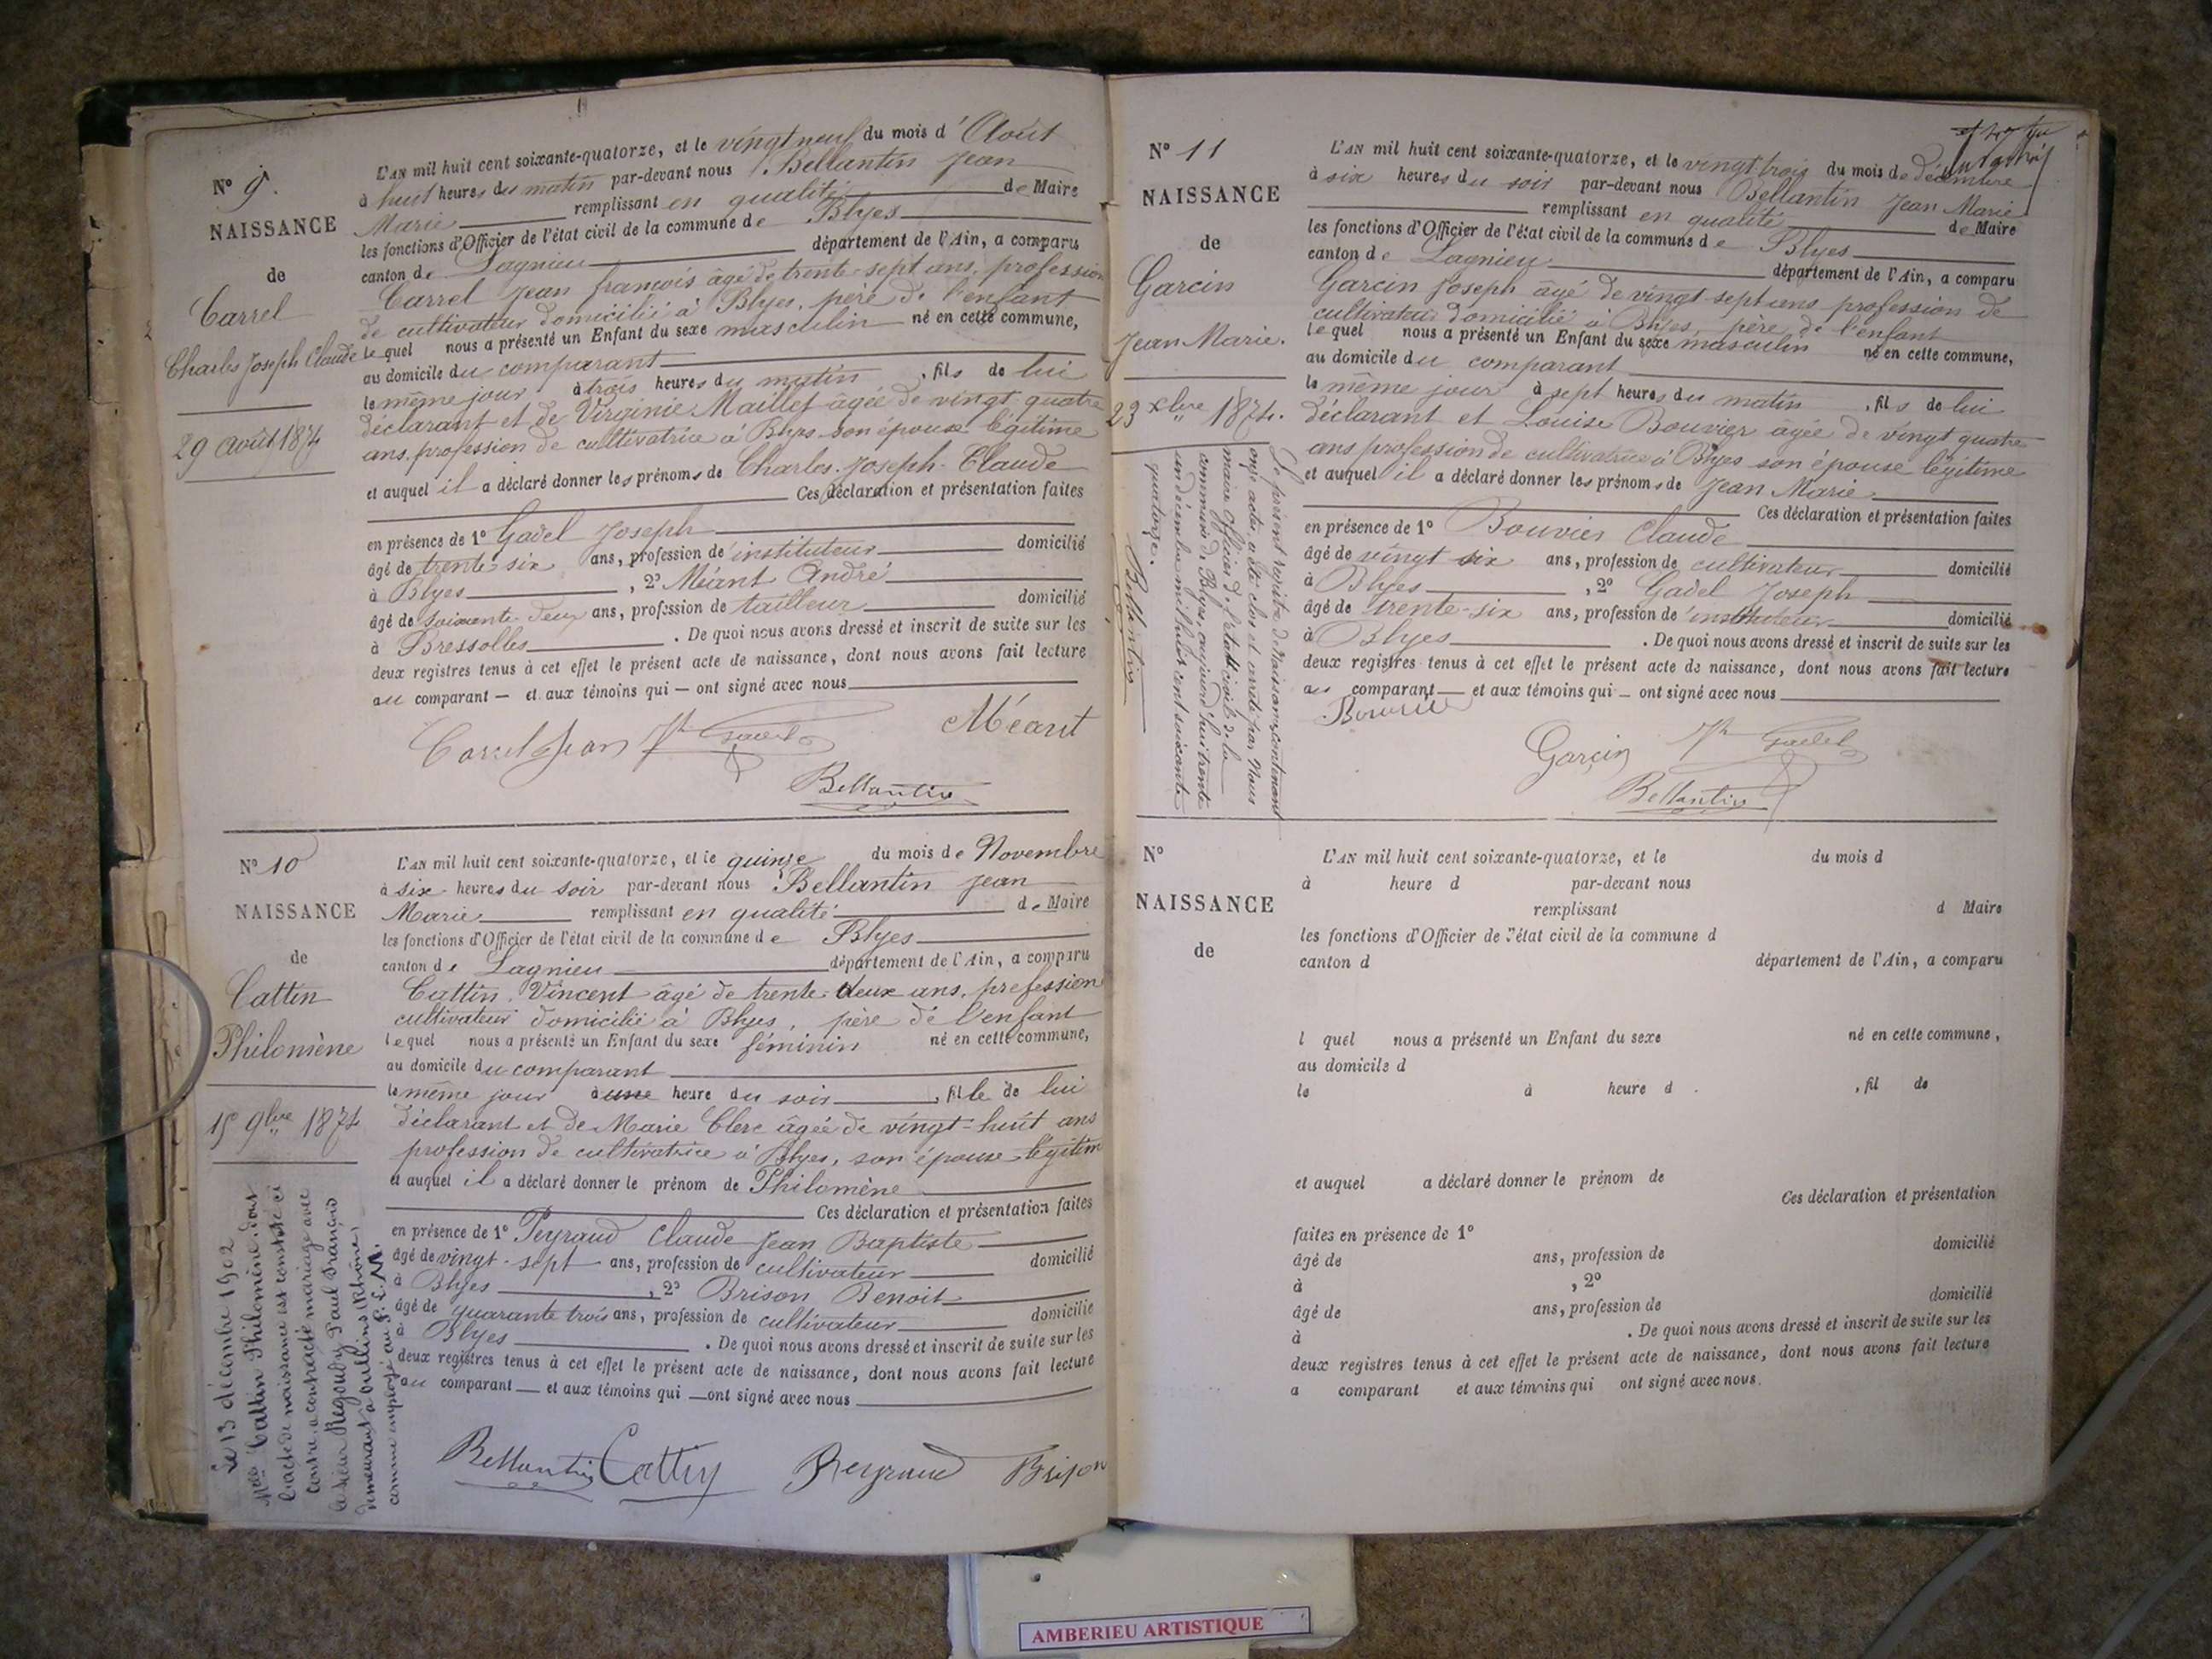 N° 9.
NAISSANCE
de
Carrel
Charles Joseph Claude
29 Août 1874
L'AN mil huit cent soixante-quatorze, et le vingt neuf du mois d'Août
à huit heures du matin par-devant nous Bellantin Jean
Marie remplissant en qualité de Maire
les fonctions d'Officier de l'état civil de la commune de Blyes
canton de Lagnieu département de l'Ain, a comparu
Carrel Jean françois âgé de trente-sept ans, profession
de cultivateur domicilié à Blyes, père de l'enfant
lequel nous a présenté un Enfant du sexe masculin né en cette commune,
au domicile du comparant
le même jour à trois heures du matin, fils de lui
déclarant et de Virginie Maillet âgée de vingt quatre
ans, profession de cultivatrice à Blyes son épouse légitime
et auquel il a déclaré donner les prénoms de Charles-Joseph-Claude
Ces déclaration et présentation faites
en présence de 1° Gadel Joseph
âgé de trente-six ans, profession de instituteur domicilié
à Blyes, 2° Méant André
âgé de soixante-deux ans, profession de tailleur domicilié
à Bressolles. De quoi nous avons dressé et inscrit de suite sur les
deux registres tenus à cet effet le présent acte de naissance, dont nous avons fait lecture
au comparant — et aux témoins qui — ont signé avec nous
Carrel Jean Jh Gadel Méant
Bellantin
N° 10
NAISSANCE
de
Cattin
Philomène
15 9bre 1874
L'AN mil huit cent soixante-quatorze, et le quinze du mois de Novembre
à six heures du soir par-devant nous Bellantin Jean
Marie remplissant en qualité de Maire
les fonctions d'Officier de l'état civil de la commune de Blyes
canton de Lagnieu département de l'Ain, a comparu
Cattin Vincent âgé de trente-deux ans, profession
cultivateur domicilié à Blyes, père de l'enfant
lequel nous a présenté un Enfant du sexe féminin né en cette commune,
au domicile du comparant
le même jour à une heure du soir, fille de lui
déclarant et de Marie Clerc âgée de vingt-huit ans
profession de cultivatrice à Blyes, son épouse légitim
et auquel il a déclaré donner le prénom de Philomène
Ces déclaration et présentation faites
en présence de 1° Peyraud Claude Jean Baptiste
âgé de vingt-sept ans, profession de cultivateur domicilié
à Blyes, 2° Brison Benoit
âgé de quarante trois ans, profession de cultivateur domicilié
à Blyes. De quoi nous avons dressé et inscrit de suite sur les
deux registres tenus à cet effet le présent acte de naissance, dont nous avons fait lecture
au comparant — et aux témoins qui — ont signé avec nous
Bellantin Cattin Peyraud Brison
Le 13 décembre 1902
Melle Cattin Philomène, dont
l'acte de naissance est constaté ci
contre, a contracté mariage avec
le sieur Regouby Paul François
demeurant à Oullins (Rhône)
comme employé au P.L.M.
N° 11
NAISSANCE
de
Garcin
Jean Marie.
23 Xbre 1874.
L'AN mil huit cent soixante-quatorze, et le vingt trois du mois de décembre
à six heures du soir par-devant nous Bellantin Jean Marie
remplissant en qualité de Maire
les fonctions d'Officier de l'état civil de la commune de Blyes
canton de Lagnieu département de l'Ain, a comparu
Garcin Joseph âgé de vingt-sept ans profession de
cultivateur domicilié à Blyes, père de l'enfant
lequel nous a présenté un Enfant du sexe masculin né en cette commune,
au domicile du comparant
le même jour à sept heures du matin, fils de lui
déclarant et Louise Bouvier âgée de vingt quatre
ans profession de cultivatrice à Blyes son épouse légitime
et auquel il a déclaré donner les prénoms de Jean Marie
Ces déclaration et présentation faites
en présence de 1° Bouvier Claude
âgé de vingt six ans, profession de cultivateur domicilié
à Blyes, 2° Gadel Joseph
âgé de trente-six ans, profession de instituteur domicilié
à Blyes. De quoi nous avons dressé et inscrit de suite sur les
deux registres tenus à cet effet le présent acte de naissance, dont nous avons fait lecture
au comparant — et aux témoins qui — ont signé avec nous
Bouvier
Garcin Jh Gadel
Bellantin
Le présent registre de Naissances, contenant
onze actes, a été clos et arrêté par Nous
maire Officier de l'état civil de la
commune de Blyes, aujourd'hui trente
un décembre mil huit cent soixante
quatorze.
Bellantin
N°
NAISSANCE
de
L'AN mil huit cent soixante-quatorze, et le du mois d
à heure d par-devant nous
remplissant d Maire
les fonctions d'Officier de l'état civil de la commune d
canton d département de l'Ain, a comparu
l quel nous a présenté un Enfant du sexe né en cette commune,
au domicile d
le à heure d , fil de
et auquel a déclaré donner le prénom de
Ces déclaration et présentation
faites en présence de 1°
âgé de ans, profession de domicilié
à , 2°
âgé de ans, profession de domicilié
à . De quoi nous avons dressé et inscrit de suite sur les
deux registres tenus à cet effet le présent acte de naissance, dont nous avons fait lecture
a comparant et aux témoins qui ont signé avec nous.
AMBERIEU ARTISTIQUE